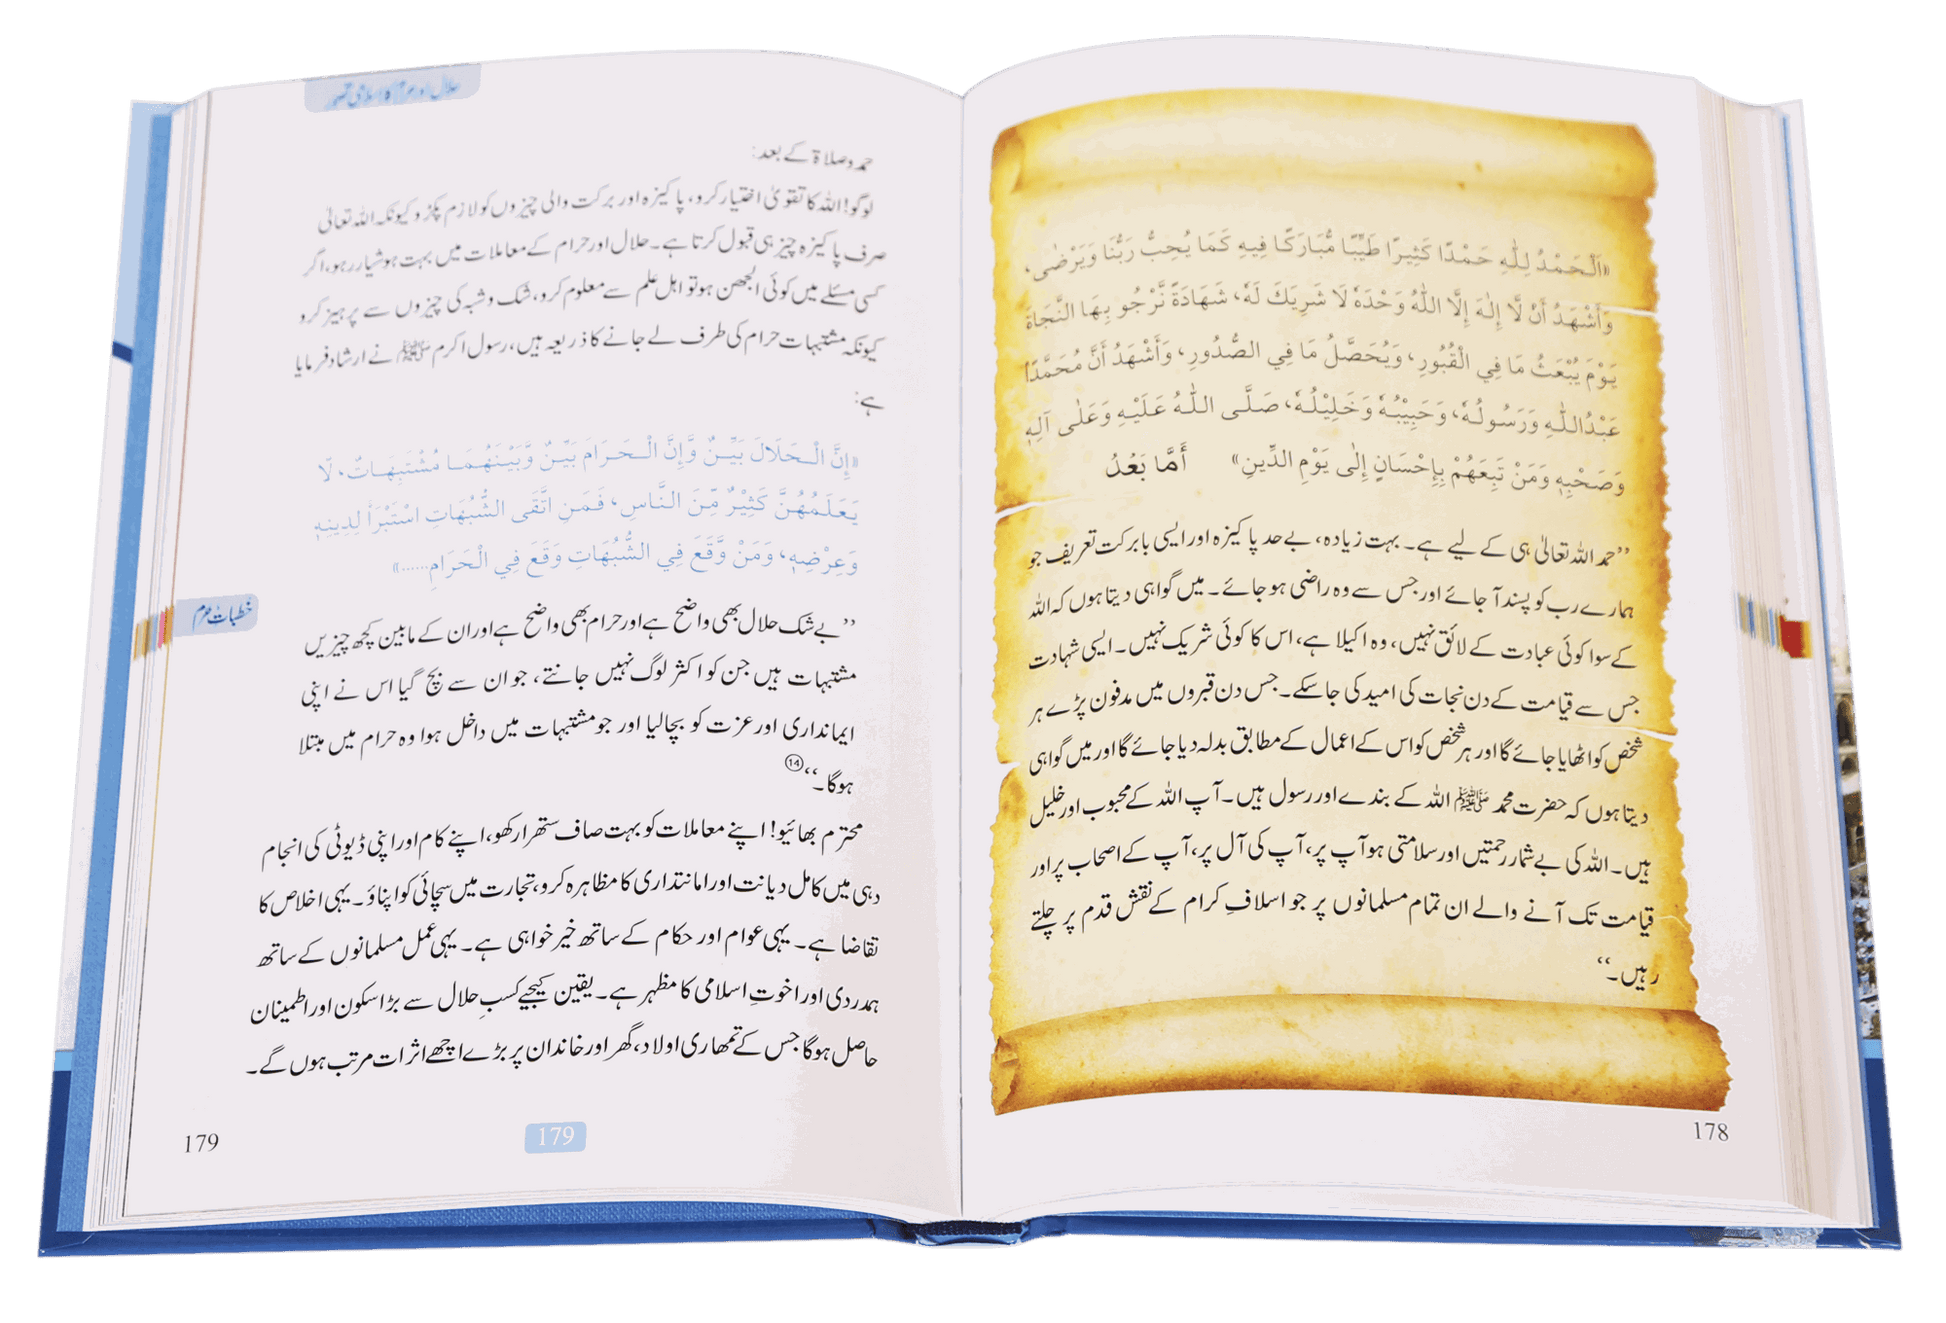 «اَلْحَمْدُ لِلّٰهِ حَمْدًا كَثِيرًا طَيِّبًا مُّبَارَكًا فِيهِ كَمَا يُحِبُّ رَبُّنَا وَيَرْضٰى،
وَأَشْهَدُ أَنْ لَّا إِلٰهَ إِلَّا اللّٰهُ وَحْدَهٗ لَا شَرِيكَ لَهٗ، شَهَادَةً نَّرْجُو بِهَا النَّجَاةَ
يَوْمَ يُبْعَثُ مَا فِي الْقُبُورِ، وَيُحَصَّلُ مَا فِي الصُّدُورِ، وَأَشْهَدُ أَنَّ مُحَمَّدًا
عَبْدُاللّٰهِ وَرَسُولُهٗ، وَحَبِيْبُهٗ وَخَلِيْلُهٗ، صَلَّى اللّٰهُ عَلَيْهِ وَعَلٰى آلِهٖ
وَصَحْبِهٖ وَمَنْ تَبِعَهُمْ بِإِحْسَانٍ إِلٰى يَوْمِ الدِّينِ» أَمَّا بَعْدُ
’’حمد اللہ تعالیٰ ہی کے لیے ہے۔ بہت زیادہ، بے حد پاکیزہ اور ایسی بابرکت تعریف جو
ہمارے رب کو پسند آ جائے اور جس سے وہ راضی ہو جائے۔ میں گواہی دیتا ہوں کہ اللہ
کے سوا کوئی عبادت کے لائق نہیں، وہ اکیلا ہے، اس کا کوئی شریک نہیں۔ ایسی شہادت
جس سے قیامت کے دن نجات کی امید کی جا سکے۔ جس دن قبروں میں مدفون پڑے ہر
شخص کو اٹھایا جائے گا اور ہر شخص کو اس کے اعمال کے مطابق بدلہ دیا جائے گا اور میں گواہی
دیتا ہوں کہ حضرت محمد ﷺ اللہ کے بندے اور رسول ہیں۔ آپ اللہ کے محبوب اور خلیل
ہیں۔ اللہ کی بے شمار رحمتیں اور سلامتی ہو آپ پر، آپ کی آل پر، آپ کے اصحاب پر اور
قیامت تک آنے والے ان تمام مسلمانوں پر جو اسلافِ کرام کے نقش قدم پر چلتے
رہیں۔‘‘
178
حلال اور حرام کا اسلامی تصور
حمد و صلاۃ کے بعد:
لوگو! اللہ کا تقویٰ اختیار کرو، پاکیزہ اور برکت والی چیزوں کو لازم پکڑو کیونکہ اللہ تعالیٰ
صرف پاکیزہ چیز ہی قبول کرتا ہے۔ حلال اور حرام کے معاملات میں بہت ہوشیار رہو، اگر
کسی مسئلے میں کوئی الجھن ہو تو اہل علم سے معلوم کرو، شک و شبہ کی چیزوں سے پرہیز کرو
کیونکہ مشتبہات حرام کی طرف لے جانے کا ذریعہ ہیں، رسول اکرم ﷺ نے ارشاد فرمایا
ہے:
«إِنَّ الْحَلَالَ بَيِّنٌ وَّإِنَّ الْحَرَامَ بَيِّنٌ وَّبَيْنَهُمَا مُشْتَبِهَاتٌ، لَا
يَعْلَمُهُنَّ كَثِيْرٌ مِّنَ النَّاسِ، فَمَنِ اتَّقَى الشُّبُهَاتِ اسْتَبْرَأَ لِدِينِهٖ
وَعِرْضِهٖ، وَمَنْ وَّقَعَ فِي الشُّبُهَاتِ وَقَعَ فِي الْحَرَامِ......»
خطبات حرم
’’بے شک حلال بھی واضح ہے اور حرام بھی واضح ہے اور ان کے مابین کچھ چیزیں
مشتبہات ہیں جن کو اکثر لوگ نہیں جانتے، جو ان سے بچ گیا اس نے اپنی
ایمانداری اور عزت کو بچالیا اور جو مشتبہات میں داخل ہوا وہ حرام میں مبتلا
ہوگا۔‘‘⑭
محترم بھائیو! اپنے معاملات کو بہت صاف ستھرا رکھو، اپنے کام اور اپنی ڈیوٹی کی انجام
دہی میں کامل دیانت اور امانتداری کا مظاہرہ کرو، تجارت میں سچائی کو اپناؤ۔ یہی اخلاص کا
تقاضا ہے۔ یہی عوام اور حکام کے ساتھ خیر خواہی ہے۔ یہی عمل مسلمانوں کے ساتھ
ہمدردی اور اخوتِ اسلامی کا مظہر ہے۔ یقین کیجیے کسبِ حلال سے بڑا سکون اور اطمینان
حاصل ہوگا جس کے تمھاری اولاد، گھر اور خاندان پر بڑے اچھے اثرات مرتب ہوں گے۔
179
179